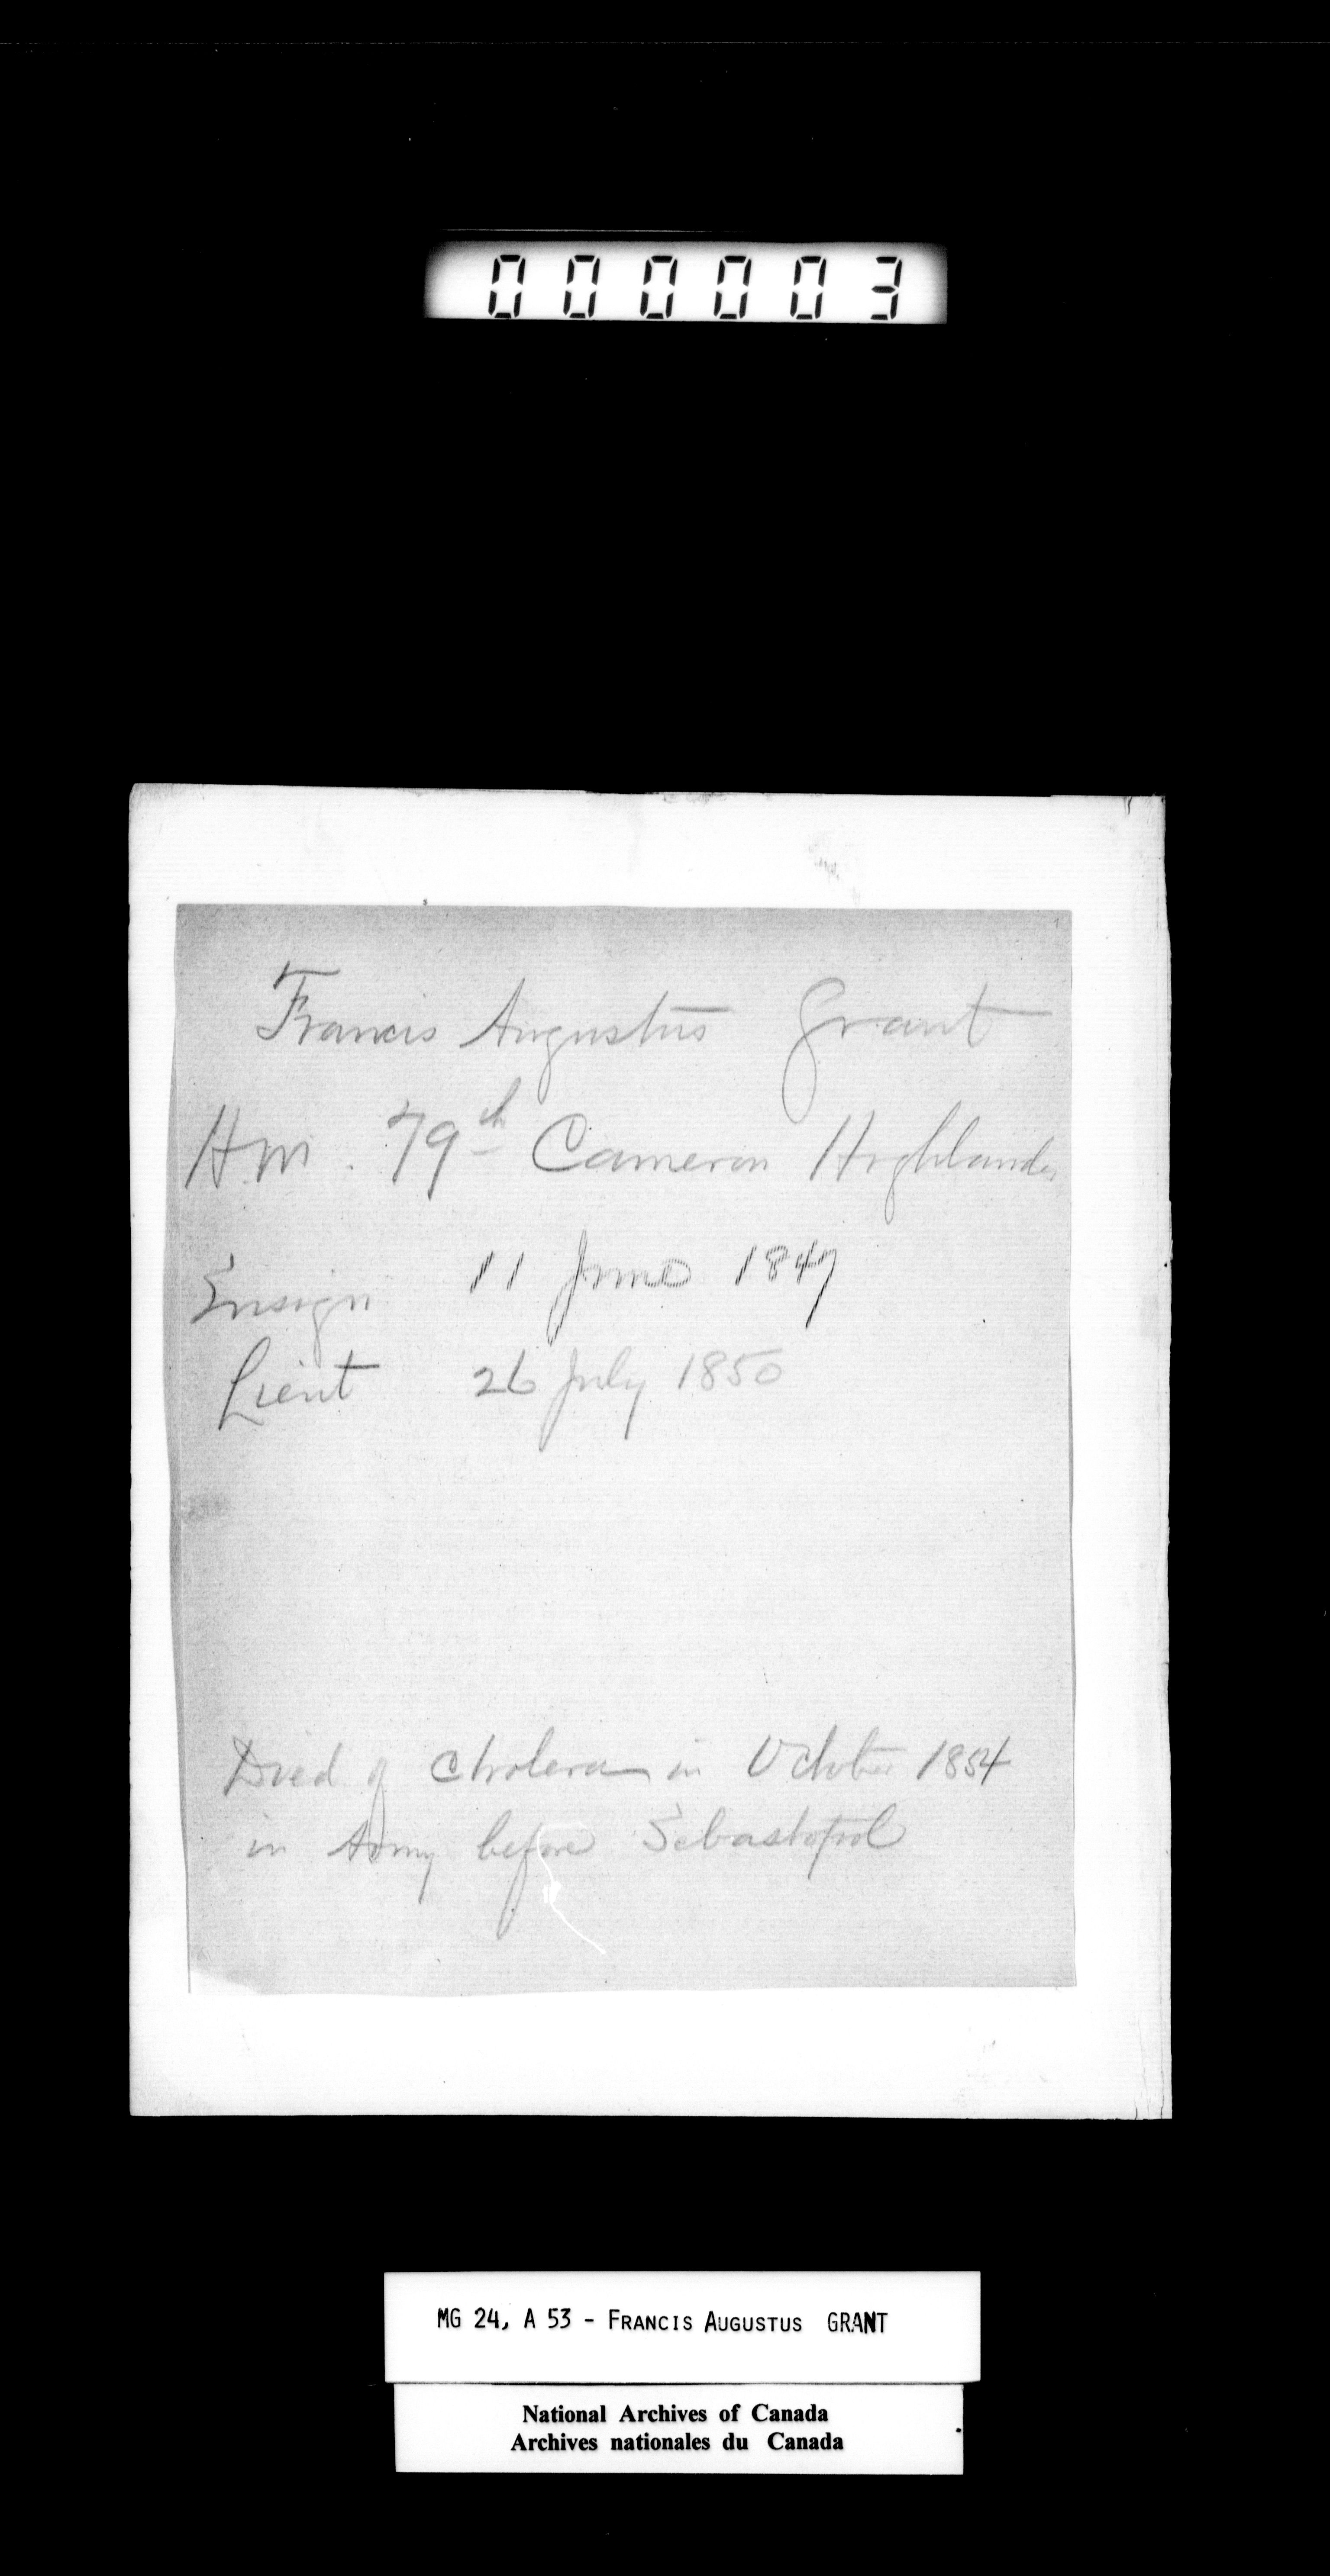 000003
Francis Augustus Grant
H.M. 79th Cameron Highlanders
Ensign 11 June 1847
Lieut 26 July 1850
Died of Cholera in October 1854
in Army before Sebastopol
MG 24, A 53 - FRANCIS AUGUSTUS GRANT
National Archives of Canada
Archives nationales du Canada